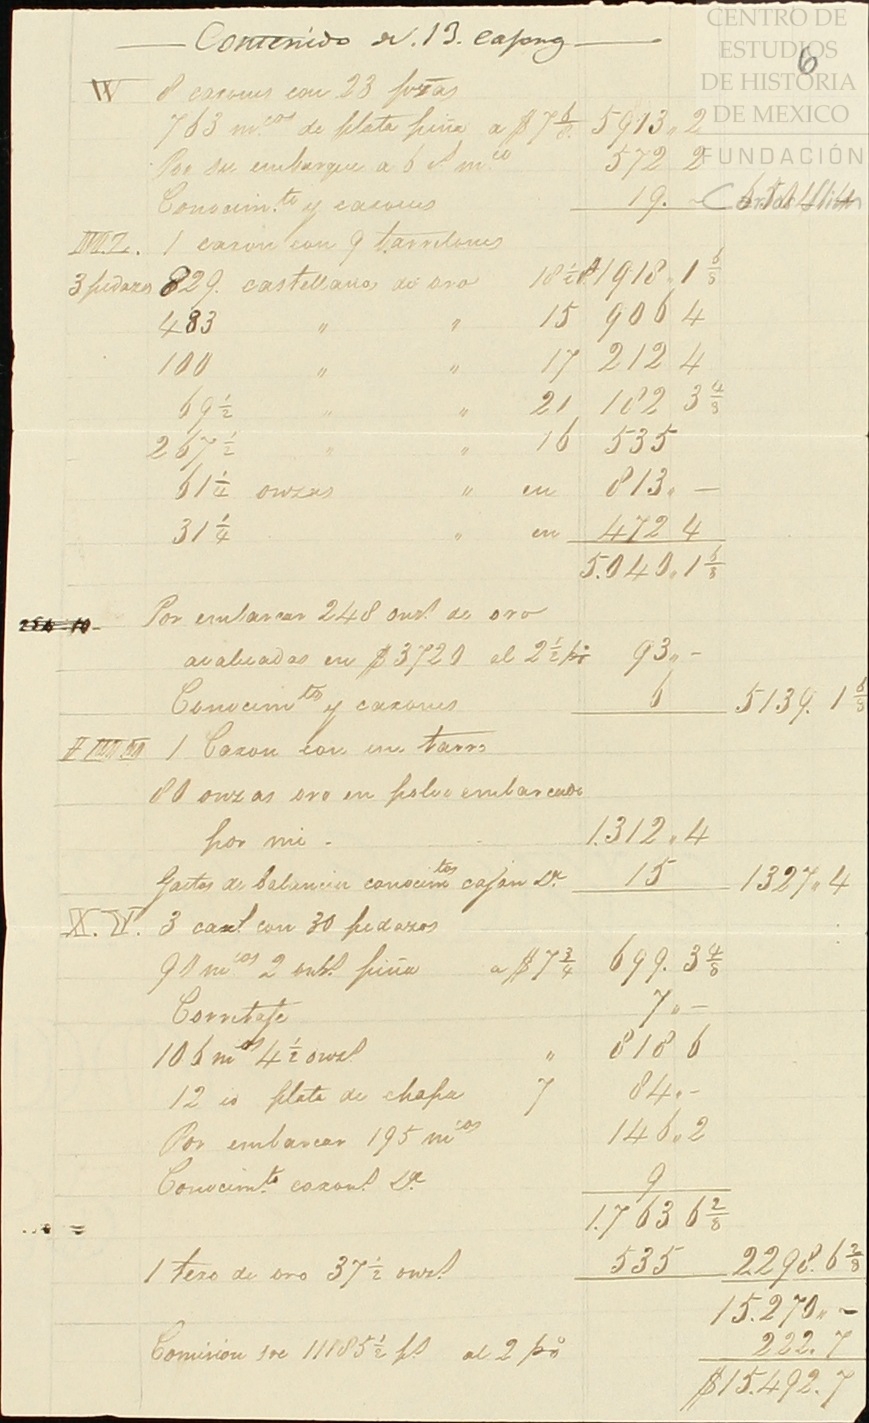 CENTRO DE
ESTUDIOS
DE HISTORIA
DE MEXICO
FUNDACIÓN
6
Contenido de 13. capong
W 8 caxones con 23 piezas
763 m.cos de plata piña a $7 6/8. 5913,, 2
Por su embarque a 6 rs m.co 572 2
Conocim.to y caxones 19. -
1 caxon con 9 tarritones
3 pedazos 829. castellanos de oro 18 1/2 rs 1918,, 1 6/8
483 " " 15 906 4
100 " " 17 212 4
69 1/2 " " 21 182 3 4/8
267 1/2 " " 16 535
61 1/4 onzas " en 813,, —
31 1/4 " en 472 4
5.040,, 1 6/8
Por embarcar 248 onzs. de oro
avaluadas en $3720 al 2 1/2 po 93,, -
Conocimtos y caxones 6 5139. 1 6/8
1 Caxon con un tarro
80 onzas oro en polvo embarcado
por mi - 1.312,, 4
Gastos de balancia conocimtos cajon &a 15 1327,, 4
X. V. 3 caxs. con 30 pedazos
90 mcos 2 onzs. piña a $7 3/4 699. 3 4/8
Corretaje 7,, —
106 mcos 4 1/2 onzs. " 818 6
12 id plata de chapa 7 84,, -
Por embarcar 195 mcos 146,, 2
Conocimto. caxons. &a 9
1.763 6 2/8
1 texo de oro 37 1/2 onzs. 535 2298. 6 2/8
15.270,, -
Comision sre 11185 1/2 ps. al 2 po 222. 7
$15.492. 7